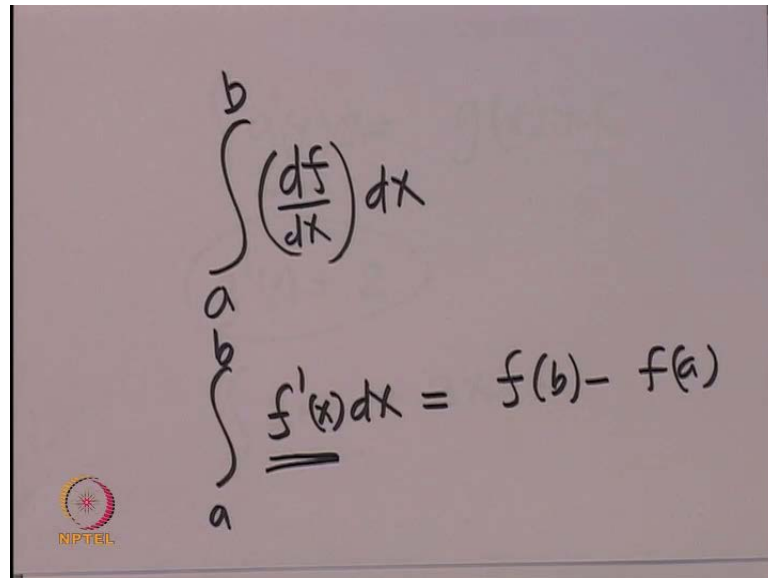 b
∫ (df/dx) dx
a
b
∫ f'(x) dx = f(b) - f(a)
a
NPTEL